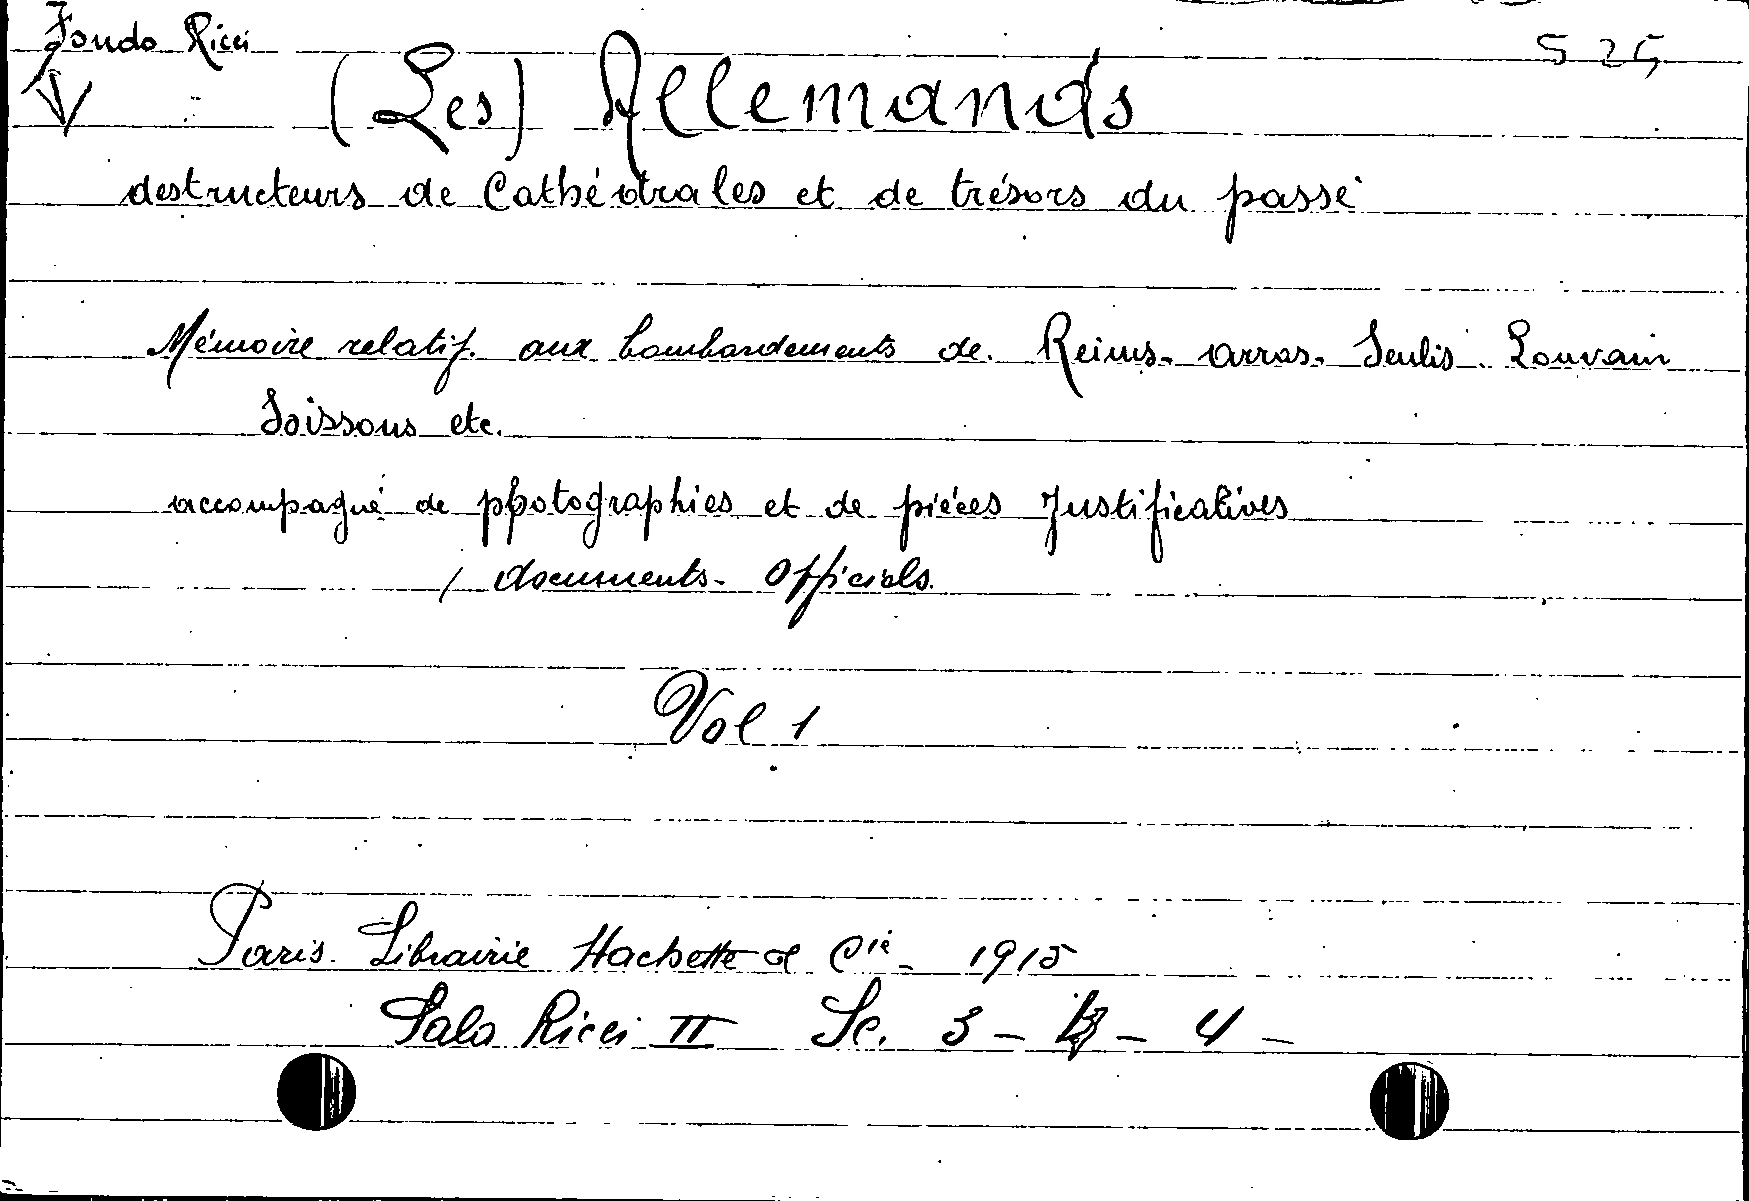 Fondo Ricci
525
(Les) Allemands
destructeurs de Cathédrales et de trésors du passé
Mémoire relatif. aux bombardements de. Reims. arras. Senlis. Louvain
Soissons etc.
accompagné de pphotographies et de pièces Justificatives
/ documents. Officiels.
Vol 1
Paris. Librairie Hachette et Cie - 1915
Sala Ricci II Sc. 3 - - 4 -